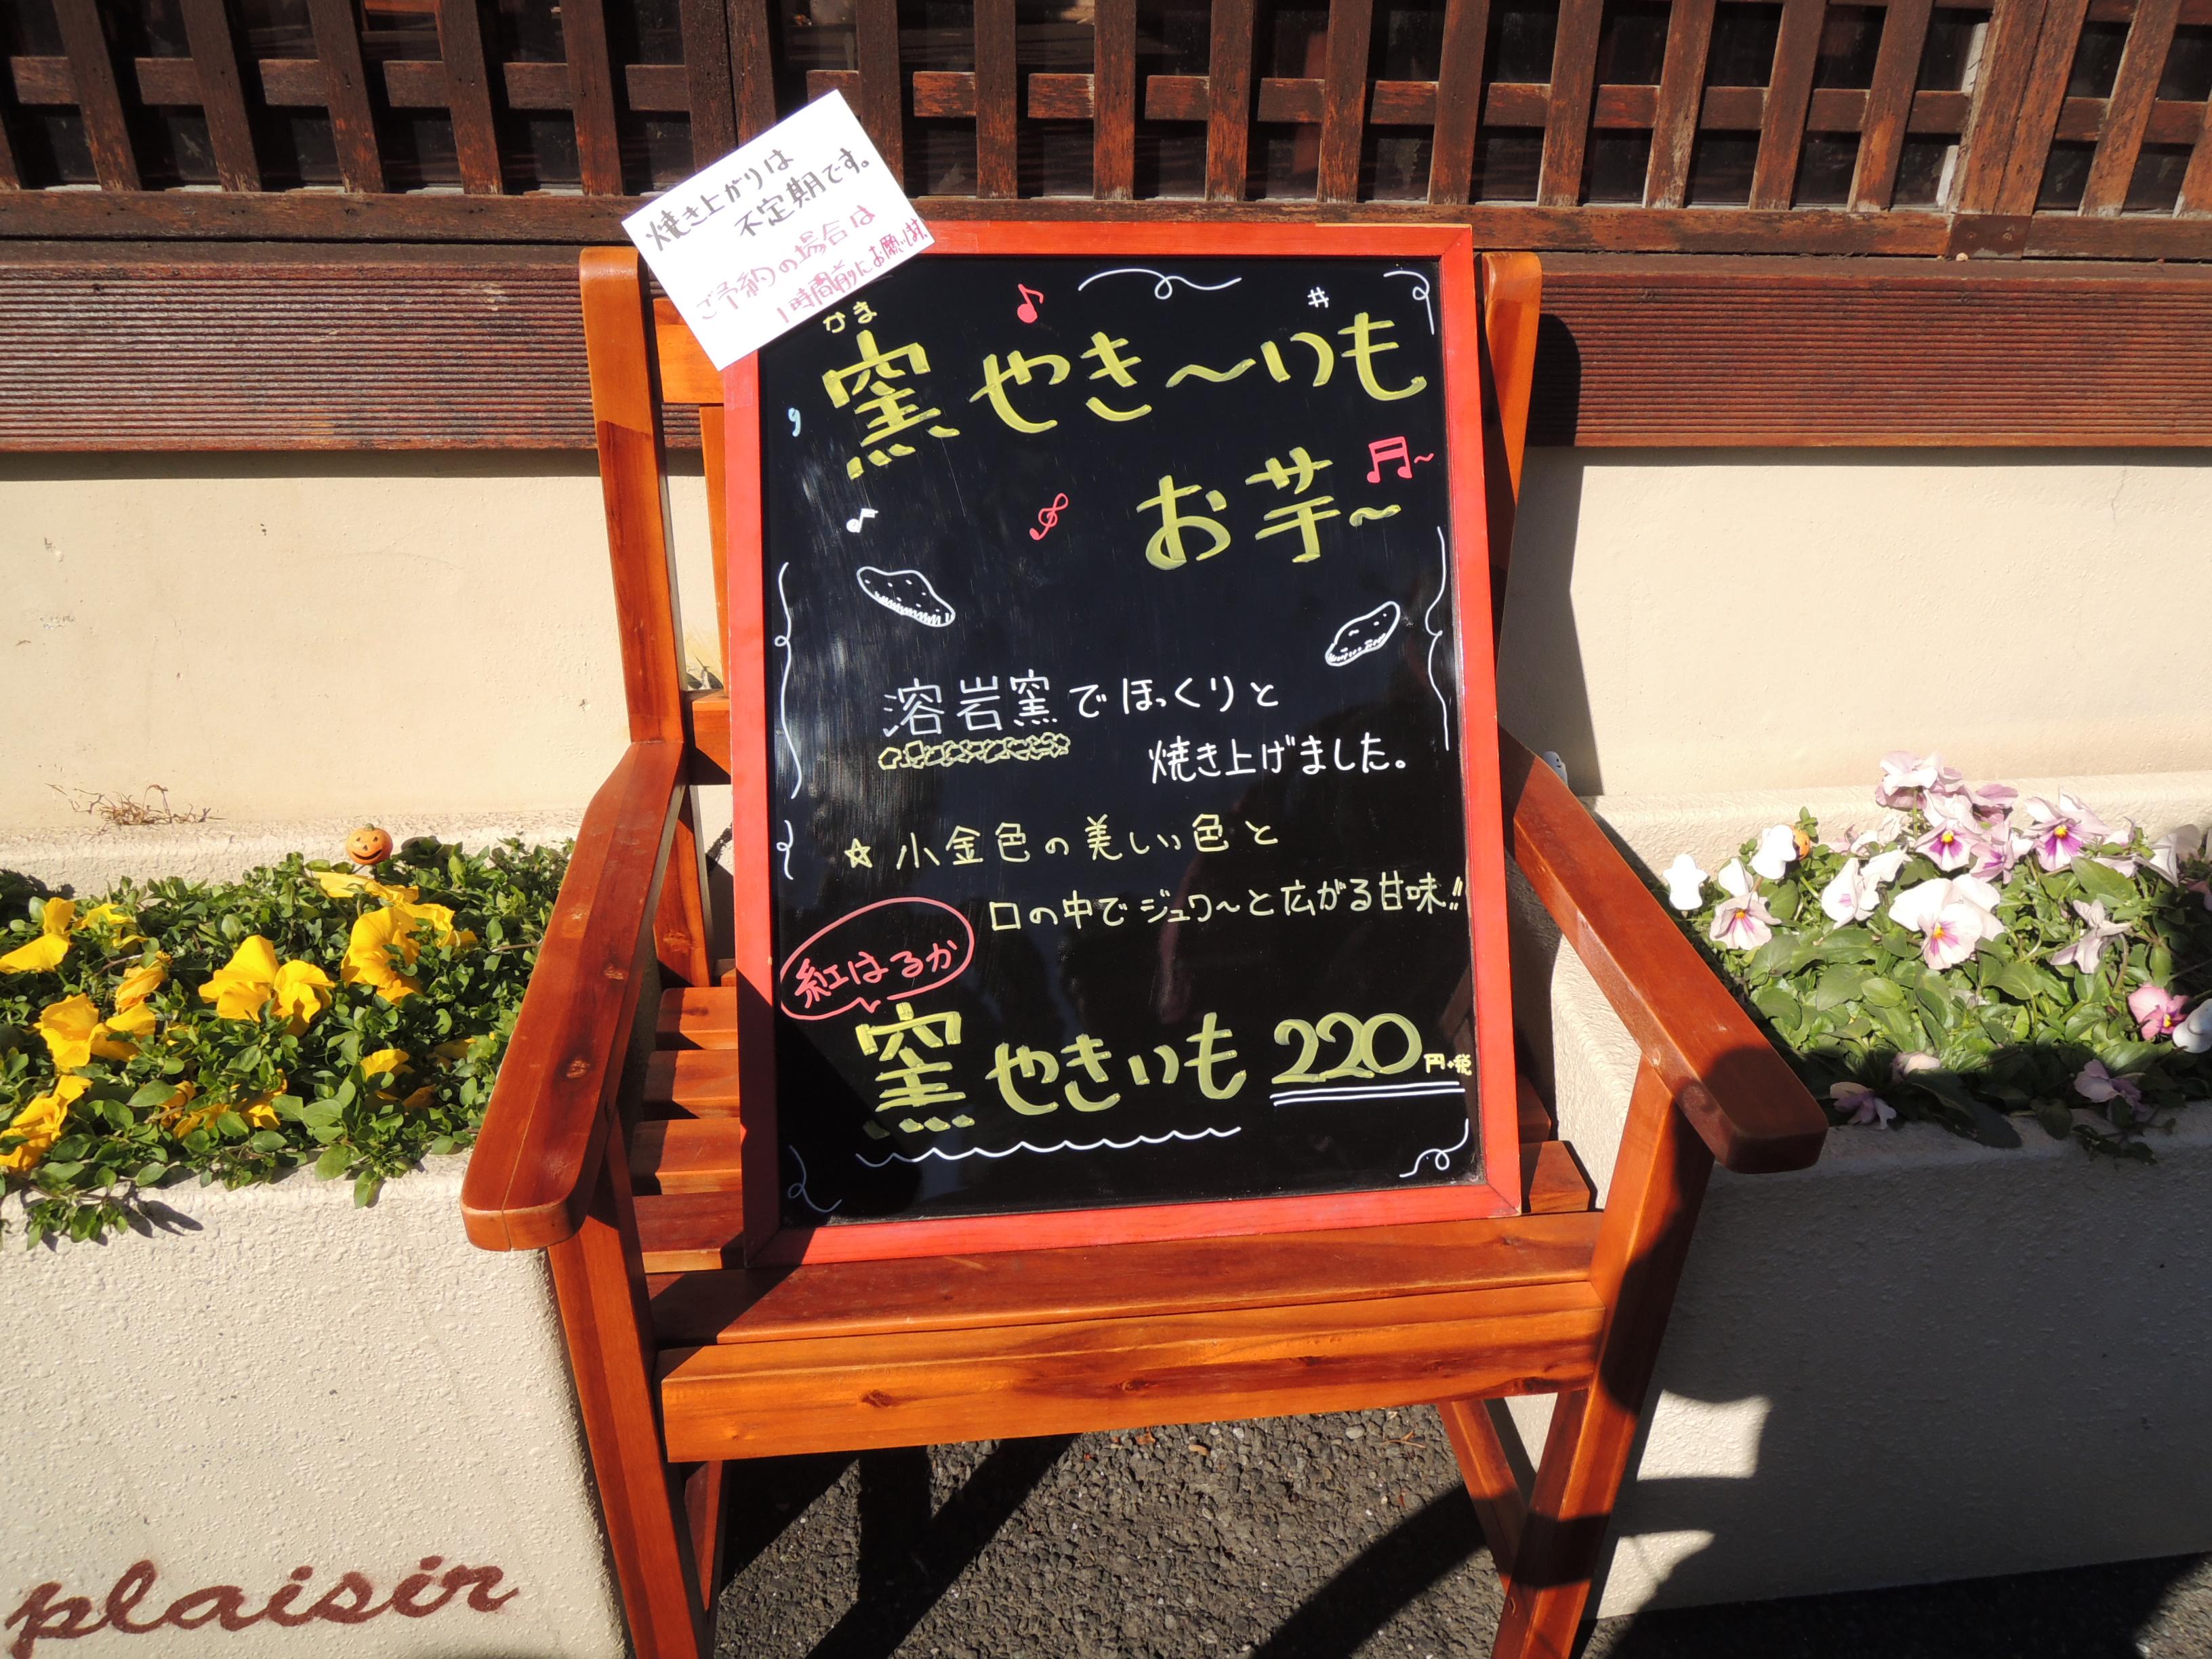 焼き上がりは
不定期です。
ご予約の場合は
1時間前にお願いします。
かま
窯やき〜いも
お芋〜
溶岩窯でほっくりと
焼き上げました。
☆小金色の美しい色と
口の中でジュワ〜と広がる甘味!!
紅はるか
窯やきいも 220円+税
plaisir